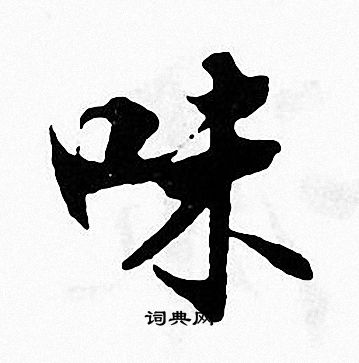 味
词典网